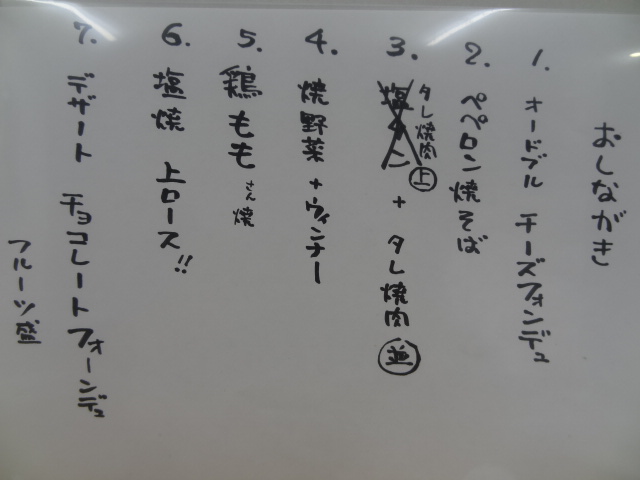 おしながき
1. オードブル チーズフォンデュ
2. ペペロン焼そば
3. タレ焼肉 上 + タレ焼肉 並
4. 焼野菜+ウィンナー
5. 鶏もも さん焼
6. 塩焼 上ロース!!
7. デザート チョコレートフォーンデュ
フルーツ盛